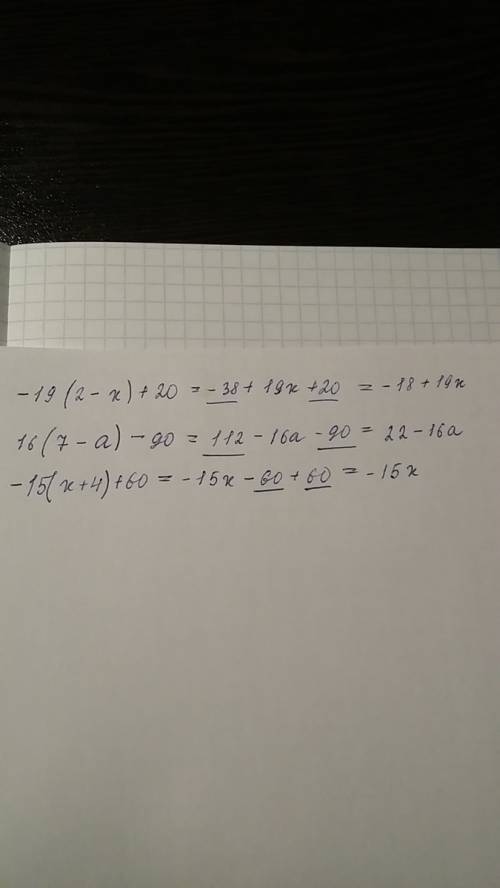 -19(2-x)+20 = -38+19x+20 = -18+19x
16(7-a)-90 = 112-16a-90 = 22-16a
-15(x+4)+60 = -15x-60+60 = -15x